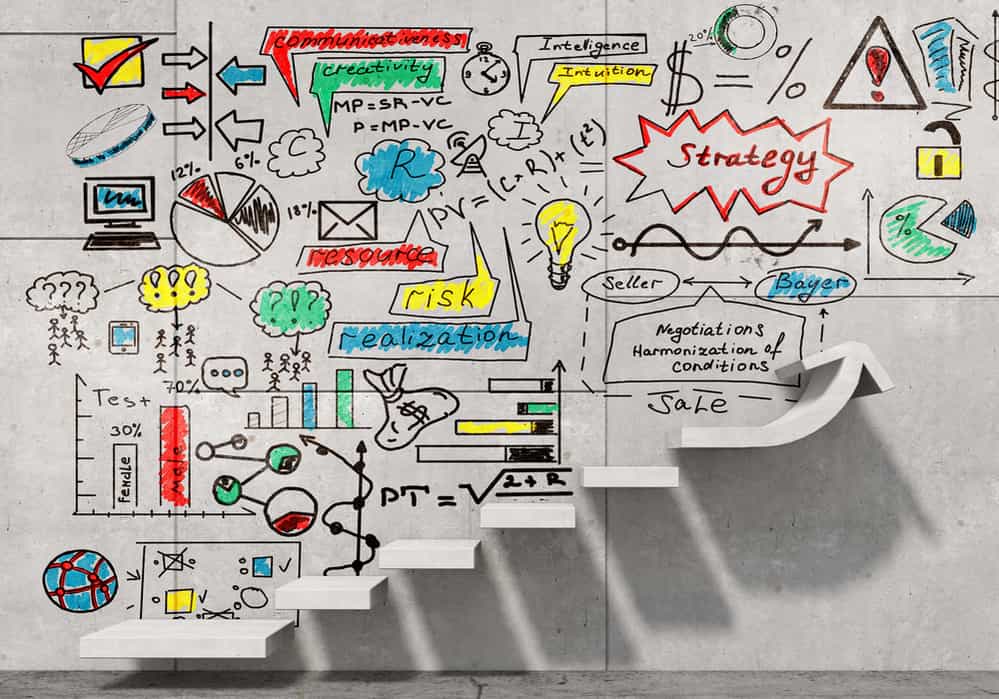 communicativeness
creativity
MP=SR-VC
P=MP-VC
Intelligence
Intuition
20%
$ = %
!
Strategy
12%
6%
18%
C
R
I
PV=(C+R)+(t²)
=
resource
risk
realization
???
!!!
?!?
%
Seller
Bayer
Negotiations
Harmonization of
conditions
Sale
Test
70%
30%
Female
Male
$
PT=√2+R